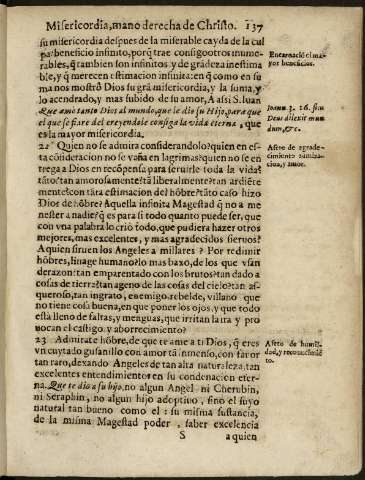 Misericordia, mano derecha de Christo. 137
su misericordia despues de la miserable cayda de la cul
pa: beneficio infinito, porq̃ trae consigo otros inume-
rables, q̃ tambien son infinitos y de grãdeza inestima
ble, y q̃ merecen estimacion infinita: en q̃ como en su
ma nos mostrò Dios su grã misericordia, y la suma, y
lo acendrado, y mas subido de su amor, A assi S. Iuan
Que amò tanto Dios al mundo, que le dio su Hijo, para que
el que se fiare del creyendole consiga la vida eterna, que
es la mayor misericordia.
Encarnaciõ el ma
yor beneficios.
Ioann. 3. 16. sic
Deus dilexit mun
dum, &c.
22 Quien no se admira considerandolo? quien en es-
ta cõsideracion no se vaña en lagrimas? quien no se en
trega a Dios en recõpensa para seruirle toda la vida?
tãto? tan amorosamẽte? tã liberalmẽte? tan ardiẽte
mente? con tãta estimacion del hõbre? tãto caso hizo
Dios de hõbre? Aquella infinita Magestad q̃ no a me
nester a nadie? q̃ es para si todo quanto puede ser, que
con vna palabra lo criò todo, que pudiera hazer otros
mejores, mas excelentes, y mas agradecidos sieruos?
A quien siruen los Angeles a millares? Por redimir
hõbres, linage humano? lo mas baxo, de los que vsan
de razon? tan emparentado con los brutos? tan dado a
cosas de tierra? tan ageno de las cosas del cielo? tan as-
queroso, tan ingrato, enemigo, rebelde, villano que
no tiene cosa buena, en que poner los ojos, y que todo
està lleno de faltas, y menguas, que irritan la ira y pro
uocan el castigo y aborrecimiento?
Afeto de agrade-
cimiento admira-
cion, y amor.
23 Admirate hõbre, de que te ame a ti Dios, q̃ eres
vn cuytado gusanillo con amor tã inmenso, con fauor
tan raro, dexando Angeles de tan alta naturaleza, tan
excelentes entendimientos en su condenacion eter-
na. Que te dio a su hijo, no algun Angel ni Cherubin,
ni Seraphin, no algun hijo adoptiuo, sino el suyo
natural tan bueno como el: su misma sustancia,
de la misma Magestad poder, saber excelencia
Afeto de humil-
dad, y reconocimiẽ
to.
S a quien